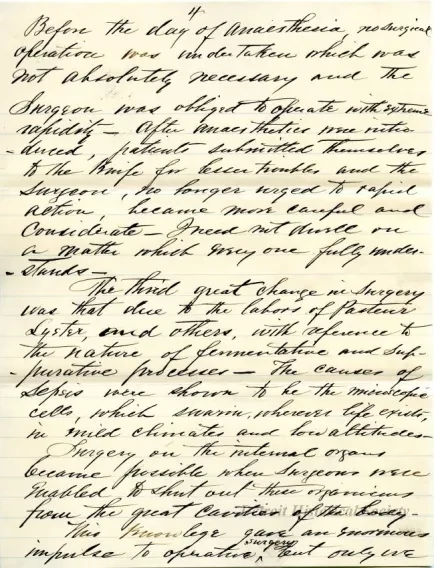 4
Before the day of anaesthesia, no surgical
operation was undertaken which was
not absolutely necessary and the
Surgeon was obliged to operate with extreme
rapidity — After anaesthetics were intro
-duced, patients submitted themselves
to the knife for lesser troubles and the
Surgeon, no longer urged to rapid
action, became more careful and
Considerate — I need not dwell on
a matter which every one fully under-
-stands —
The third great change in Surgery
was that due to the labors of Pasteur
Lyster, and others, with reference to
the nature of fermentative and sup-
-purative processes — The causes of
Sepsis were shown to be the microscopic
cells, which swarm, wherever life exists,
in mild climates and low altitudes —
Surgery on the internal organs
became possible when Surgeons were
enabled to shut out these organisms
from the great cavities of the body
This Knowlege gave an enormous
impulse to operative surgery, but only we
Historical Society